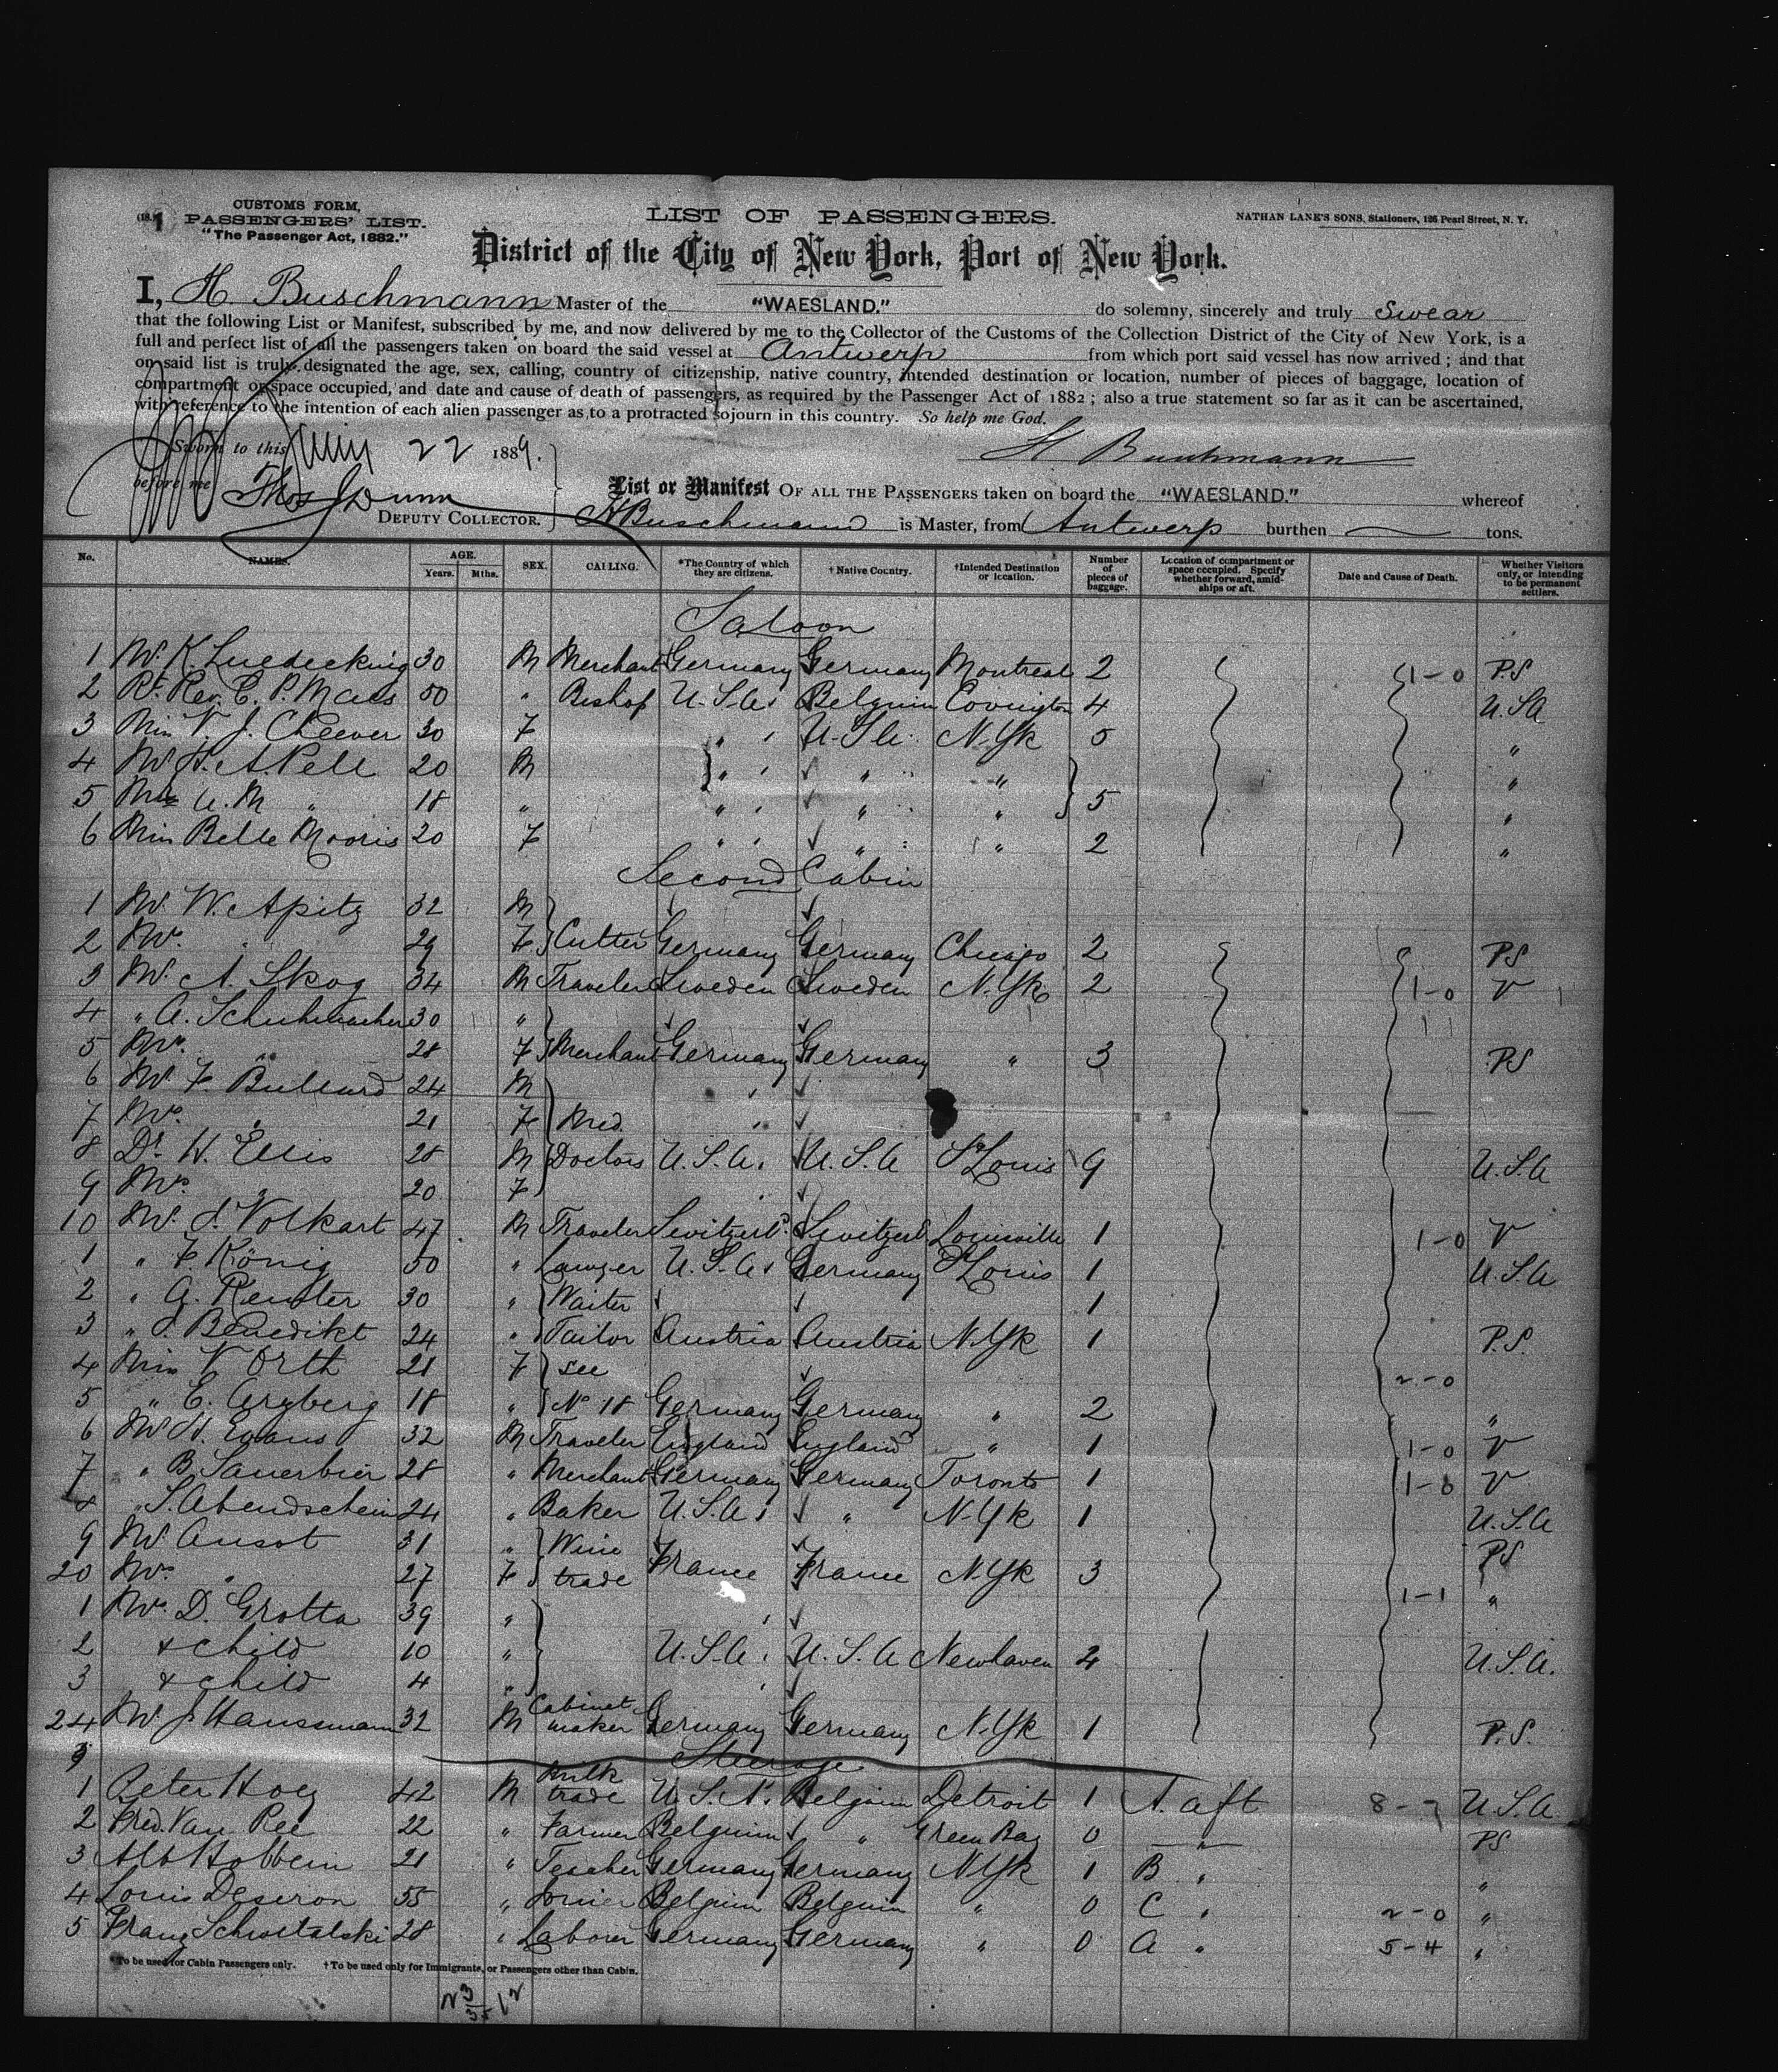 CUSTOMS FORM,
PASSENGERS' LIST.
"The Passenger Act, 1882."
LIST OF PASSENGERS.
NATHAN LANE'S SONS, Stationers, 126 Pearl Street, N. Y.
District of the City of New York, Port of New York.
I, H. Buschmann Master of the "WAESLAND." do solemny, sincerely and truly Swear
that the following List or Manifest, subscribed by me, and now delivered by me to the Collector of the Customs of the Collection District of the City of New York, is a
full and perfect list of all the passengers taken on board the said vessel at Antwerp from which port said vessel has now arrived; and that
on said list is truly designated the age, sex, calling, country of citizenship, native country, intended destination or location, number of pieces of baggage, location of
compartment or space occupied, and date and cause of death of passengers, as required by the Passenger Act of 1882; also a true statement so far as it can be ascertained,
with reference to the intention of each alien passenger as to a protracted sojourn in this country. So help me God.
Sworn to this 22 1889.
H Buschmann
before me Thos J Dunn
DEPUTY COLLECTOR.
List or Manifest OF ALL THE PASSENGERS taken on board the "WAESLAND." whereof
H Buschmann is Master, from Antwerp burthen tons.
No. NAMES. AGE. Years. Mths. SEX. CALLING. *The Country of which they are citizens. † Native Country. †Intended Destination or location. Number of pieces of baggage. Location of compartment or space occupied. Specify whether forward, amidships or aft. Date and Cause of Death. Whether Visitors only, or intending to be permanent settlers.
Saloon
1 Mr. K. Luedecking 30 M Merchant Germany Germany Montreal 2 1-0 P.S
2 Rt. Rev. C. P. Maes 50 " Bishop U.S.A. Belgium Covington 4 U.S.A
3 Miss V. J. Cheever 30 F " U.S.A. N.Yk 5 "
4 Mr H. A. Pell 20 M " " " "
5 A. M " 18 " " " " 5 "
6 Miss Belle Mooris 20 F " " " 2 "
Second Cabin
1 Mr. W. Apitz 32 M
2 Mrs. " 29 F Cutter Germany Germany Chicago 2 PS
3 Mr. A. Skog 34 M Traveler Sweden Sweden N.Yk 2 1-0 V
4 " A. Schuhmacher 30 "
5 Mrs. " 28 F Merchant Germany Germany " 3 PS
6 Mr. F. Bullard 24 M
7 Mrs. " 21 F Med.
8 Dr. H. Ellis 28 M Doctors U.S.A. U.S.A St Louis 9 U.S.A
9 Mrs. " 20 F
10 Mr. J. Volkart 47 M Traveler Switzerld. Switzerld. Louisville 1 1-0 V
1 " F. König 50 " Lawyer U.S.A. Germany St Louis 1 U.S.A
2 " A. 30 " Waiter 1
3 " J. Benedikt 24 " Tailor Austria Austria N.Yk 1 P.S.
4 Miss V. Orth 21 F see 2-0
5 " E. 18 " No 18 Germany Germany " 2 "
6 Mr H. Evans 32 M Traveler England England " 1 1-0 V
7 " B. Sauerbier 28 " Merchant Germany Germany Toronto 1 1-0 V
8 " S. Abendschein 24 " Baker U.S.A. " N.Yk 1 U.S.A
9 Mr Ansot 31 " Wine PS
20 Mrs. " 27 F trade France France N.Yk 3 1-1 "
1 Mrs. D. Grotta 39 "
2 & child 10 " U.S.A. U.S.A Newhaven 4 U.S.A.
3 & child 4 "
24 Mr J Haussmann 32 M Cabinet maker Germany Germany N.Yk 1 P.S.
Steerage
1 Peter Hoey 42 M Milk trade U.S.A. Belgium Detroit 1 A. aft U.S.A
2 Fred. Van Ree 22 " Farmer Belgium " Green Bay 0 " PS
3 Alb Holbein 21 " Teacher Germany Germany N.Yk 1 B " "
4 Louis Deseron 55 " Belgium Belgium " 0 C " 2-0 "
5 Franz 28 " Laborer Germany Germany " 0 A " 5-4 "
*To be used for Cabin Passengers only. †To be used only for Immigrants, or Passengers other than Cabin.